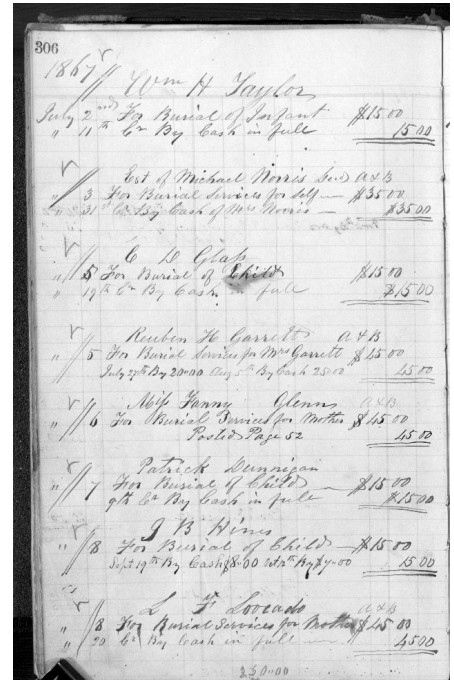 306
1867
Wm H Taylor
July 2nd For Burial of Infant $15 00
" 11th Cr By Cash in full 15 00
Est of Michael Norris Dec'd A & B
" 3 For Burial Services for Self — $35 00
" 31st Cr By Cash of Mrs Norris — $35 00
C D Glass
" 5 For Burial of Child $15 00
" 19th Cr By Cash in full $15 00
Reuben H Garrett A & B
" 5 For Burial Services for Mrs Garrett $45 00
July 27th By 20=00 Aug 5th By Cash 25=00 45 00
Miss Fanny Glenn A & B
" 6 For Burial Services for Mother $45 00
Posted Page 52 45 00
Patrick Dunnigan
" 7 For Burial of Child — $15 00
9th Cr By Cash in full $15 00
J B Hines
" 8 For Burial of Child — $15 00
Sept 19th By Cash $8=00 By $7=00 15 00
L F Loocado A & B
" 8 For Burial Services for Mother $45 00
" 20 Cr By Cash in full — 45 00
230=00